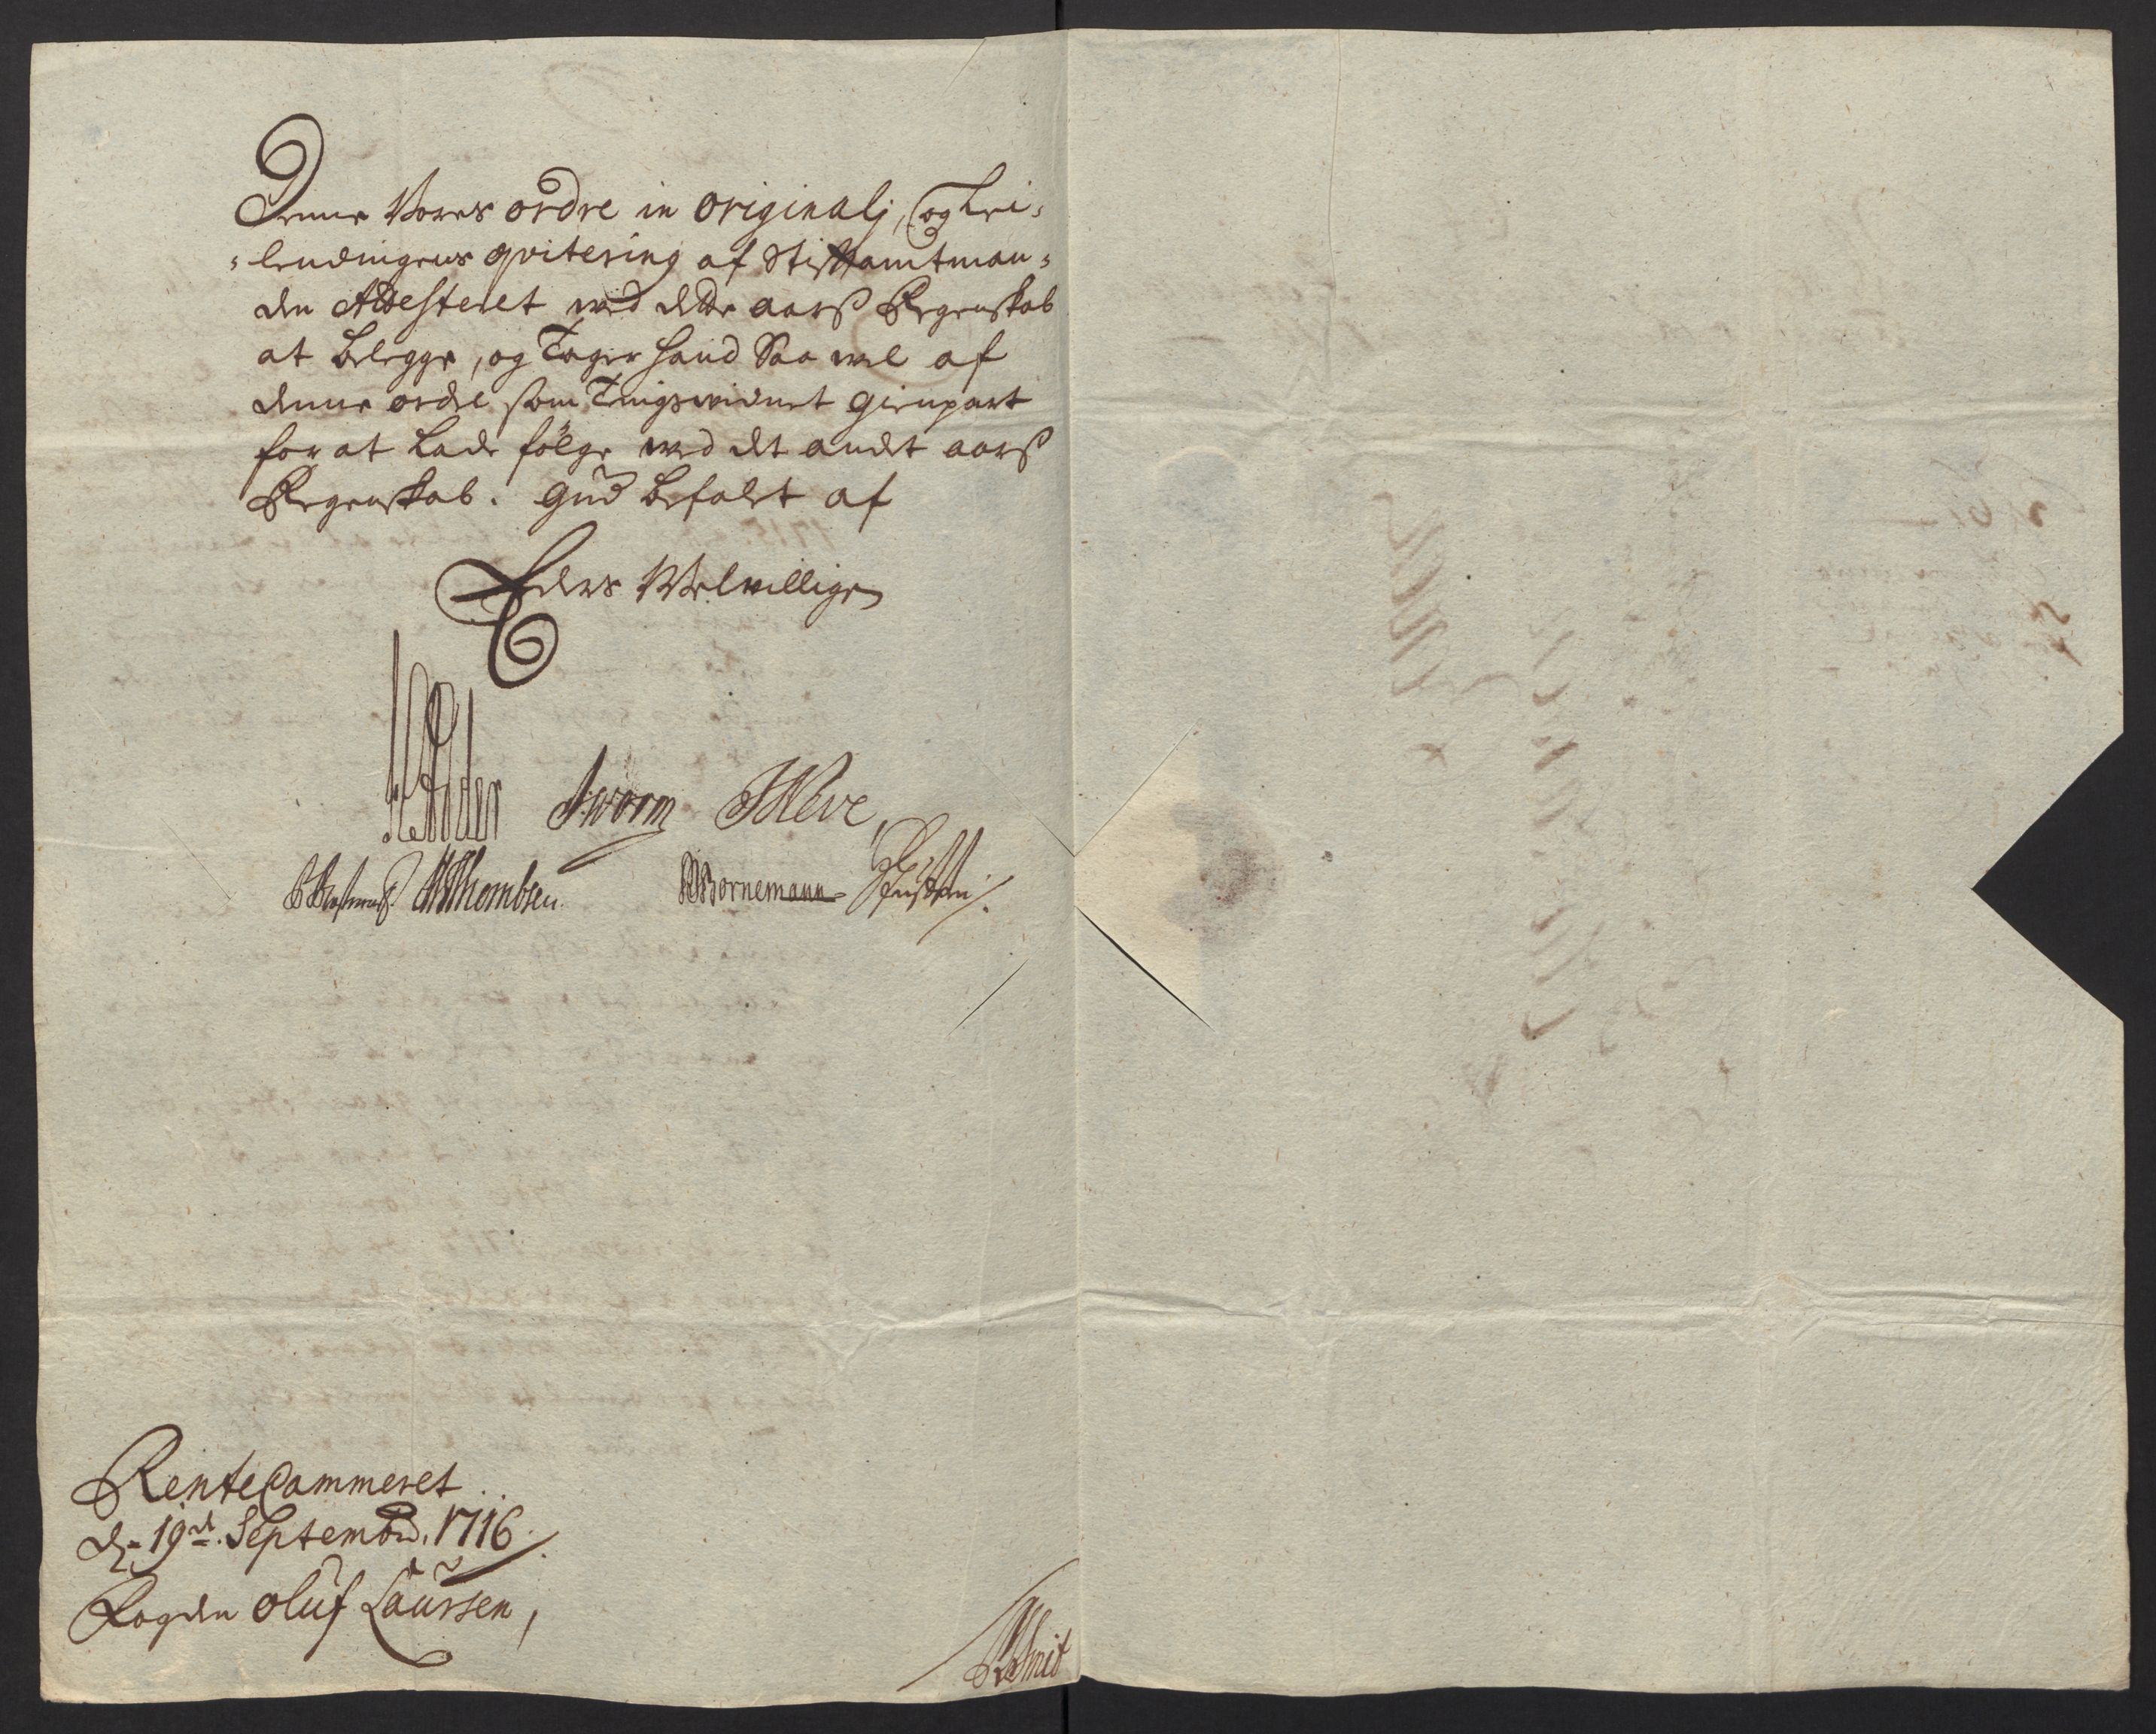 Denne Vores ordre in originalj, og Lei-
-lendingens qvitering af Stiftamtman-
den Attesteret ved dette aarß Regenskab
at belegge, og Tager hand Saa vel af
denne ordre som Tingsvidnet gienpart
for at Lade følge ved det andet aarß
Regenskab. Gud befalet af
Eders Velvillige
Worm
Thombsen
Bornemann
RenteCammeret
d. 19de Septembr. 1716
Fogden Oluf Laurssen,
Smit